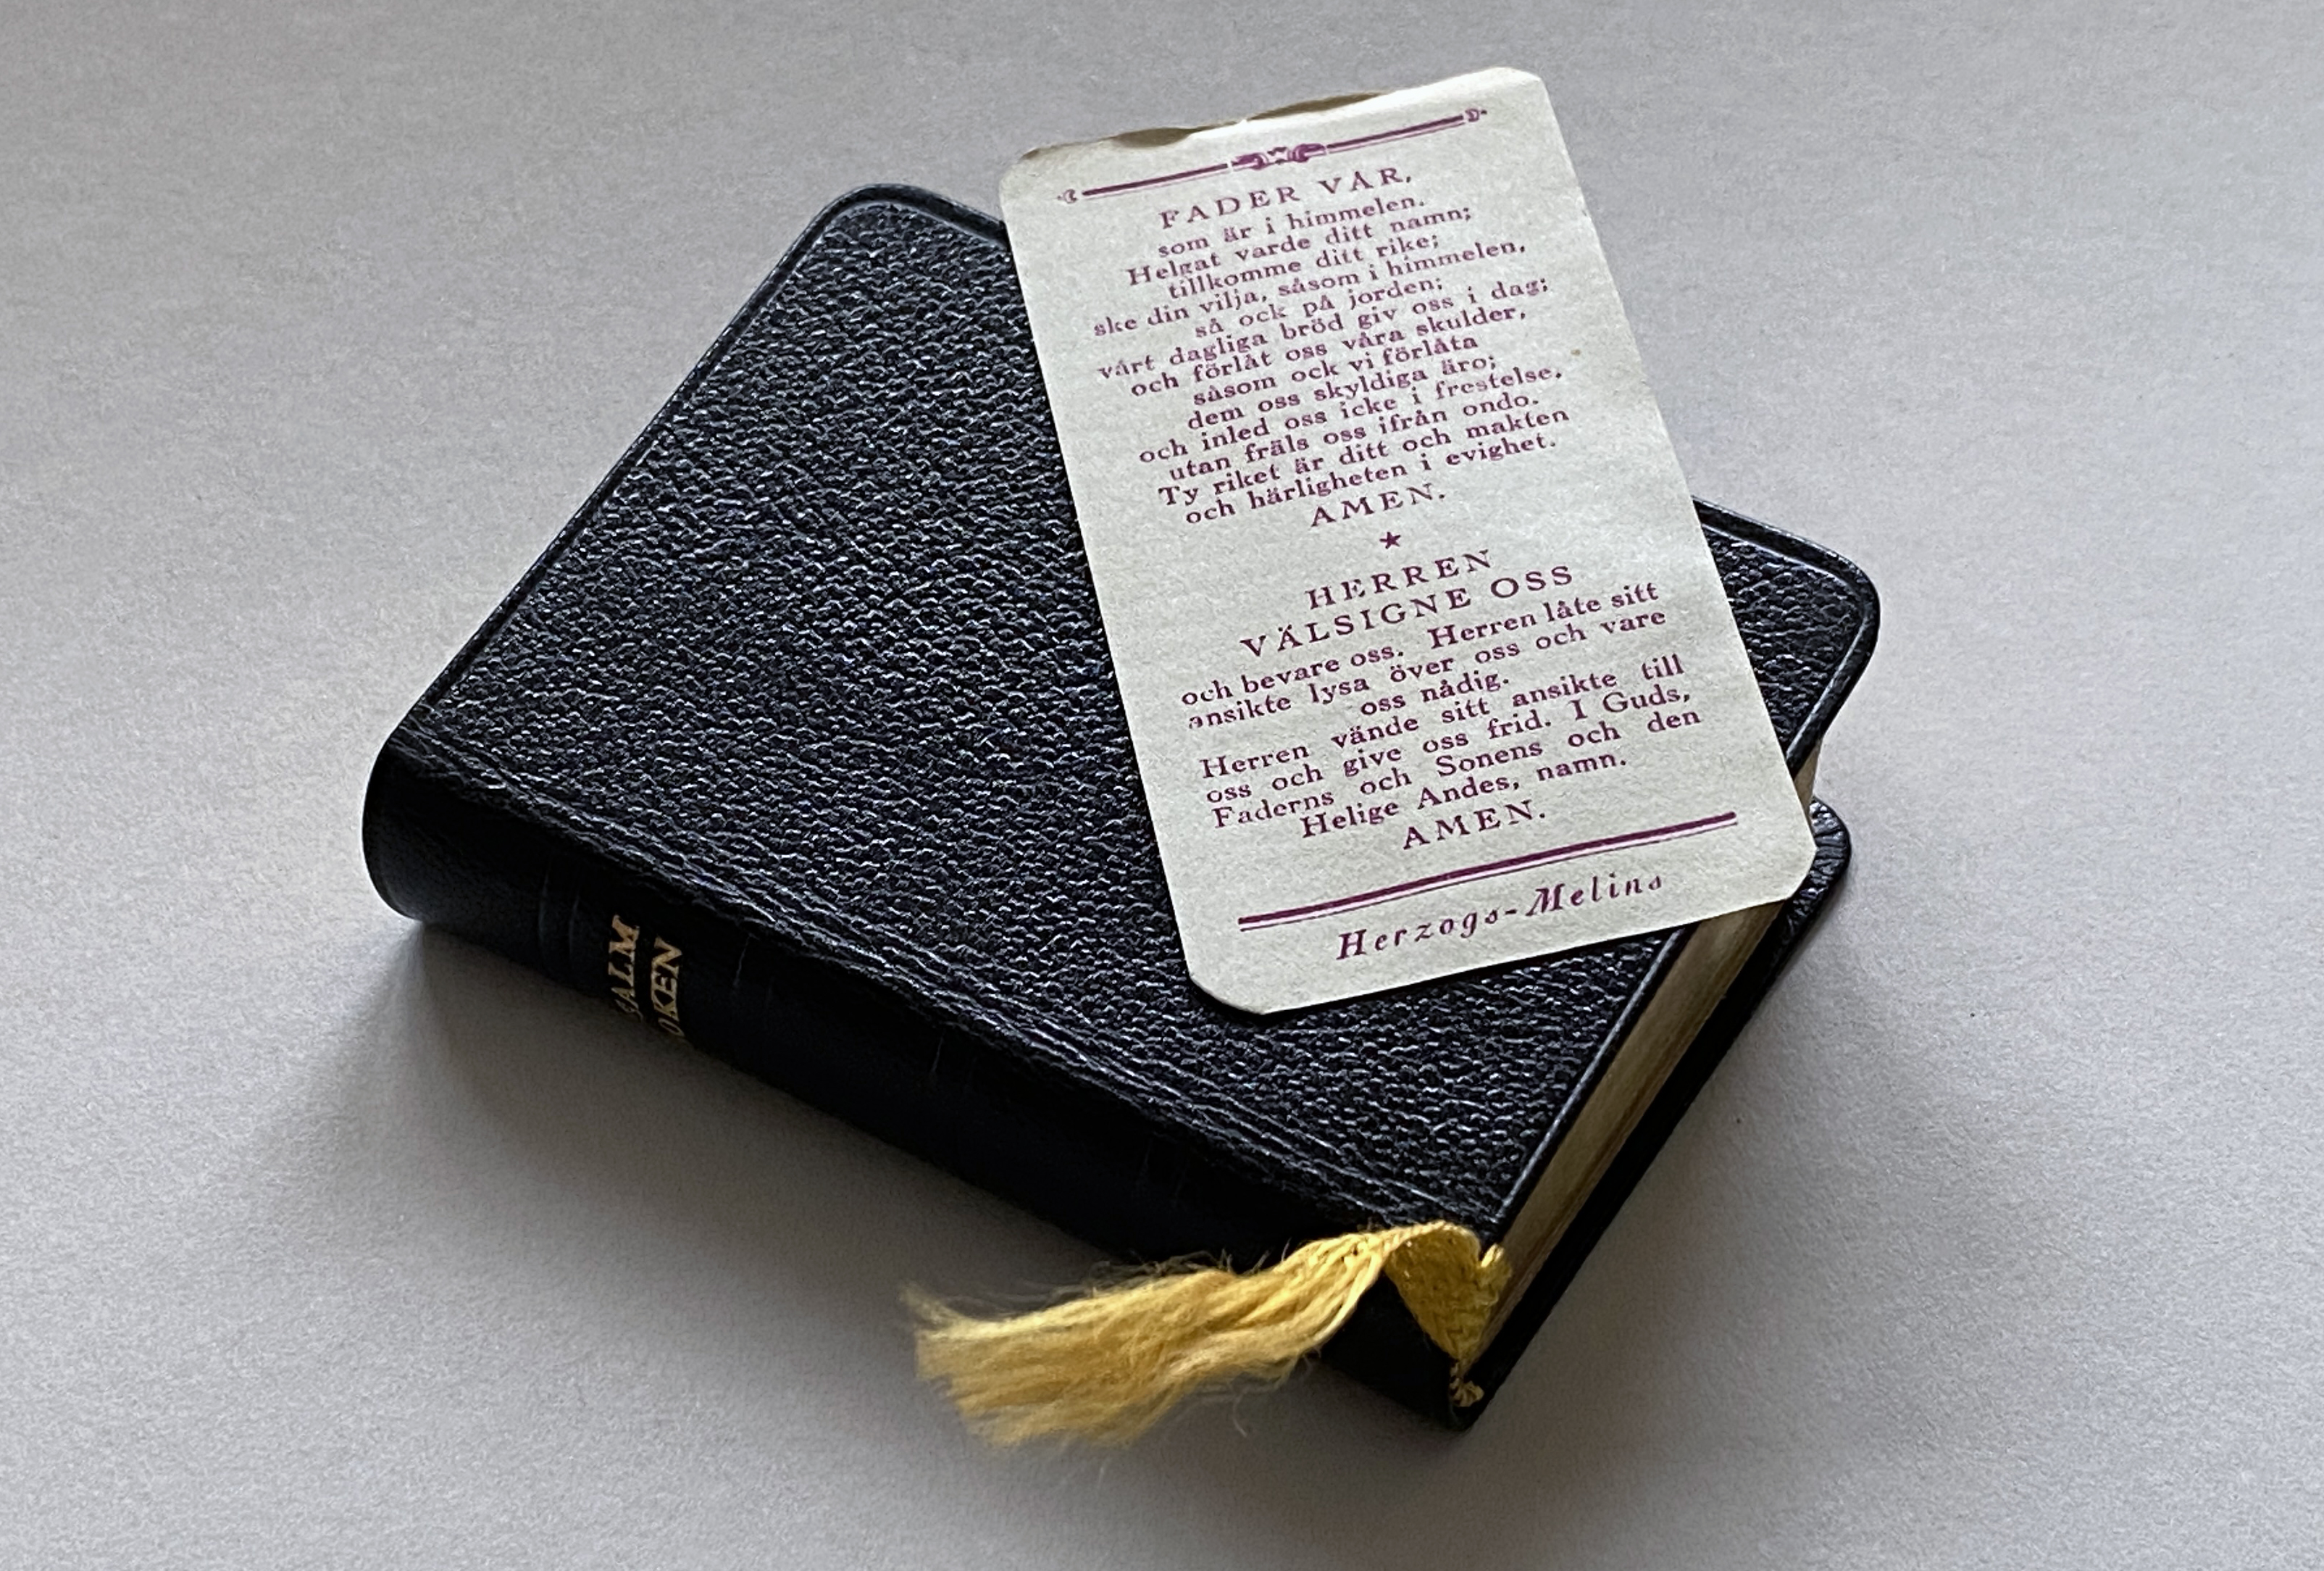 FADER VÅR,
som är i himmelen.
Helgat varde ditt namn;
tillkomme ditt rike;
ske din vilja, såsom i himmelen,
så ock på jorden;
vårt dagliga bröd giv oss i dag;
och förlåt oss våra skulder,
såsom ock vi förlåta
dem oss skyldiga äro;
och inled oss icke i frestelse,
utan fräls oss ifrån ondo.
Ty riket är ditt och makten
och härligheten i evighet.
AMEN.
HERREN
VÄLSIGNE OSS
och bevare oss. Herren låte sitt
ansikte lysa över oss och vare
oss nådig.
Herren vände sitt ansikte till
oss och give oss frid. I Guds,
Faderns och Sonens och den
Helige Andes, namn.
AMEN.
Herzogs-Melins
SALM
OKEN